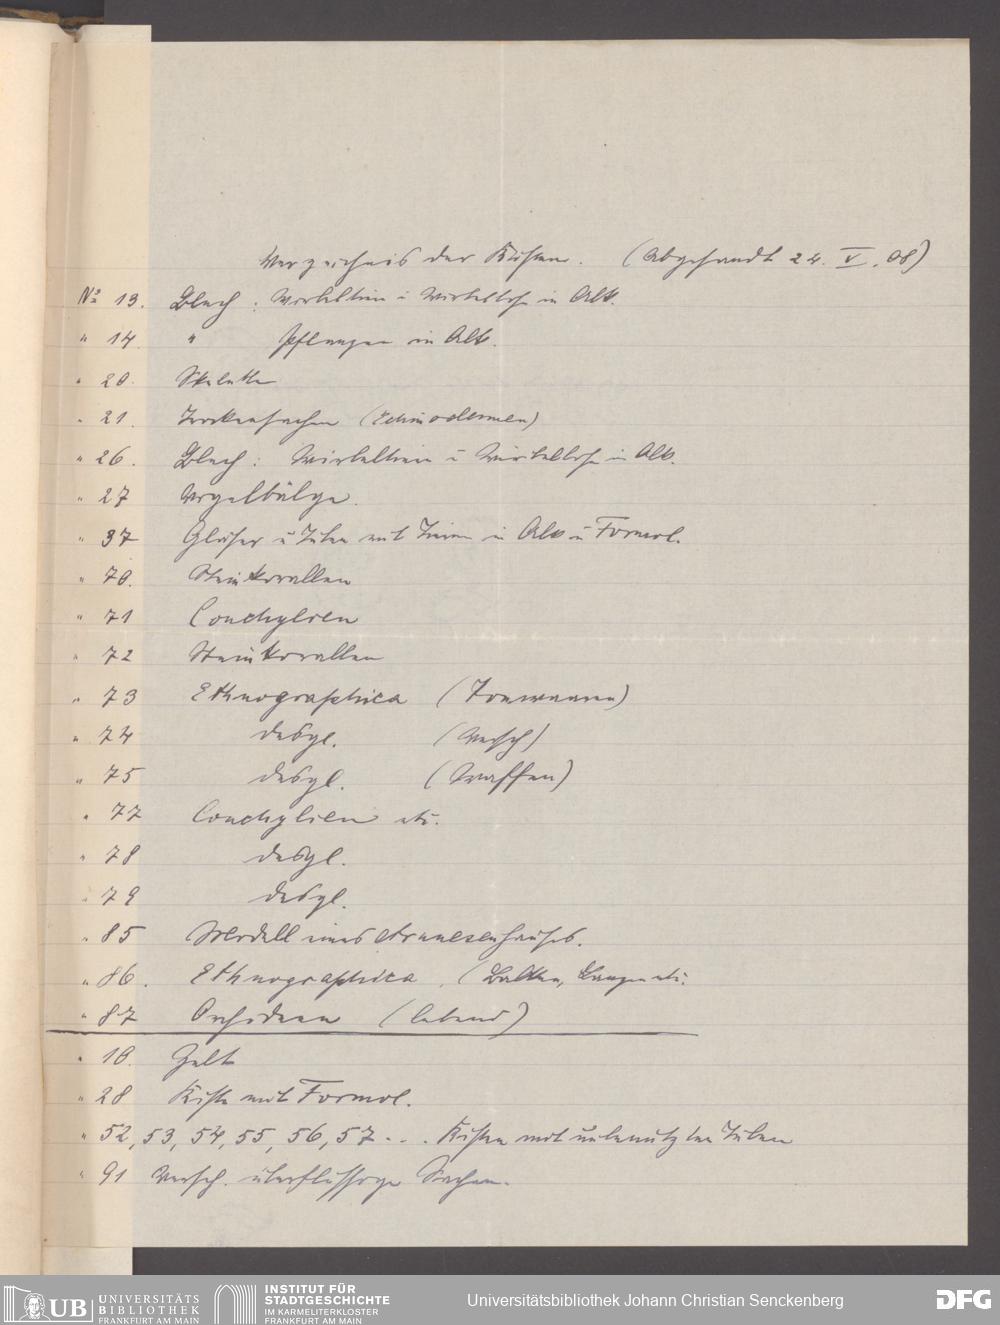 Verzeichnis der Kisten. (Abgesandt 24. V. 08)
No 13. Blech: Wirbeltiere u Wirbellose in Alk.
" 14. " Pflanzen in Alk.
" 20. Skelette
" 21. Trockensachen (Echinodermen)
" 26. Blech: Wirbeltiere u Wirbellose in Alk.
" 27 Vogelbälge.
" 37 Gläser u Tuben mit Tieren in Alk u Formol.
" 70. Steinkorallen
" 71 Conchylien
" 72 Steinkorallen
" 73 Ethnographica (Tonwaaren)
" 74 desgl. (Versch)
" 75 desgl. (Waffen)
" 77 Conchylien etc.
" 78 desgl.
" 79 desgl.
" 85 Modell eines Aruanesenhauses.
" 86. Ethnographica. ( etc.
" 87 Orchideen (lebend)
" 18. Zelt
" 28 Kiste mit Formol.
" 52, 53, 54, 55, 56, 57 . . . Kisten mit unbenutzten Tuben
" 91 Versch. überflüssige Sachen.
UB UNIVERSITÄTS
BIBLIOTHEK
FRANKFURT AM MAIN
INSTITUT FÜR
STADTGESCHICHTE
IM KARMELITERKLOSTER
FRANKFURT AM MAIN
Universitätsbibliothek Johann Christian Senckenberg
DFG